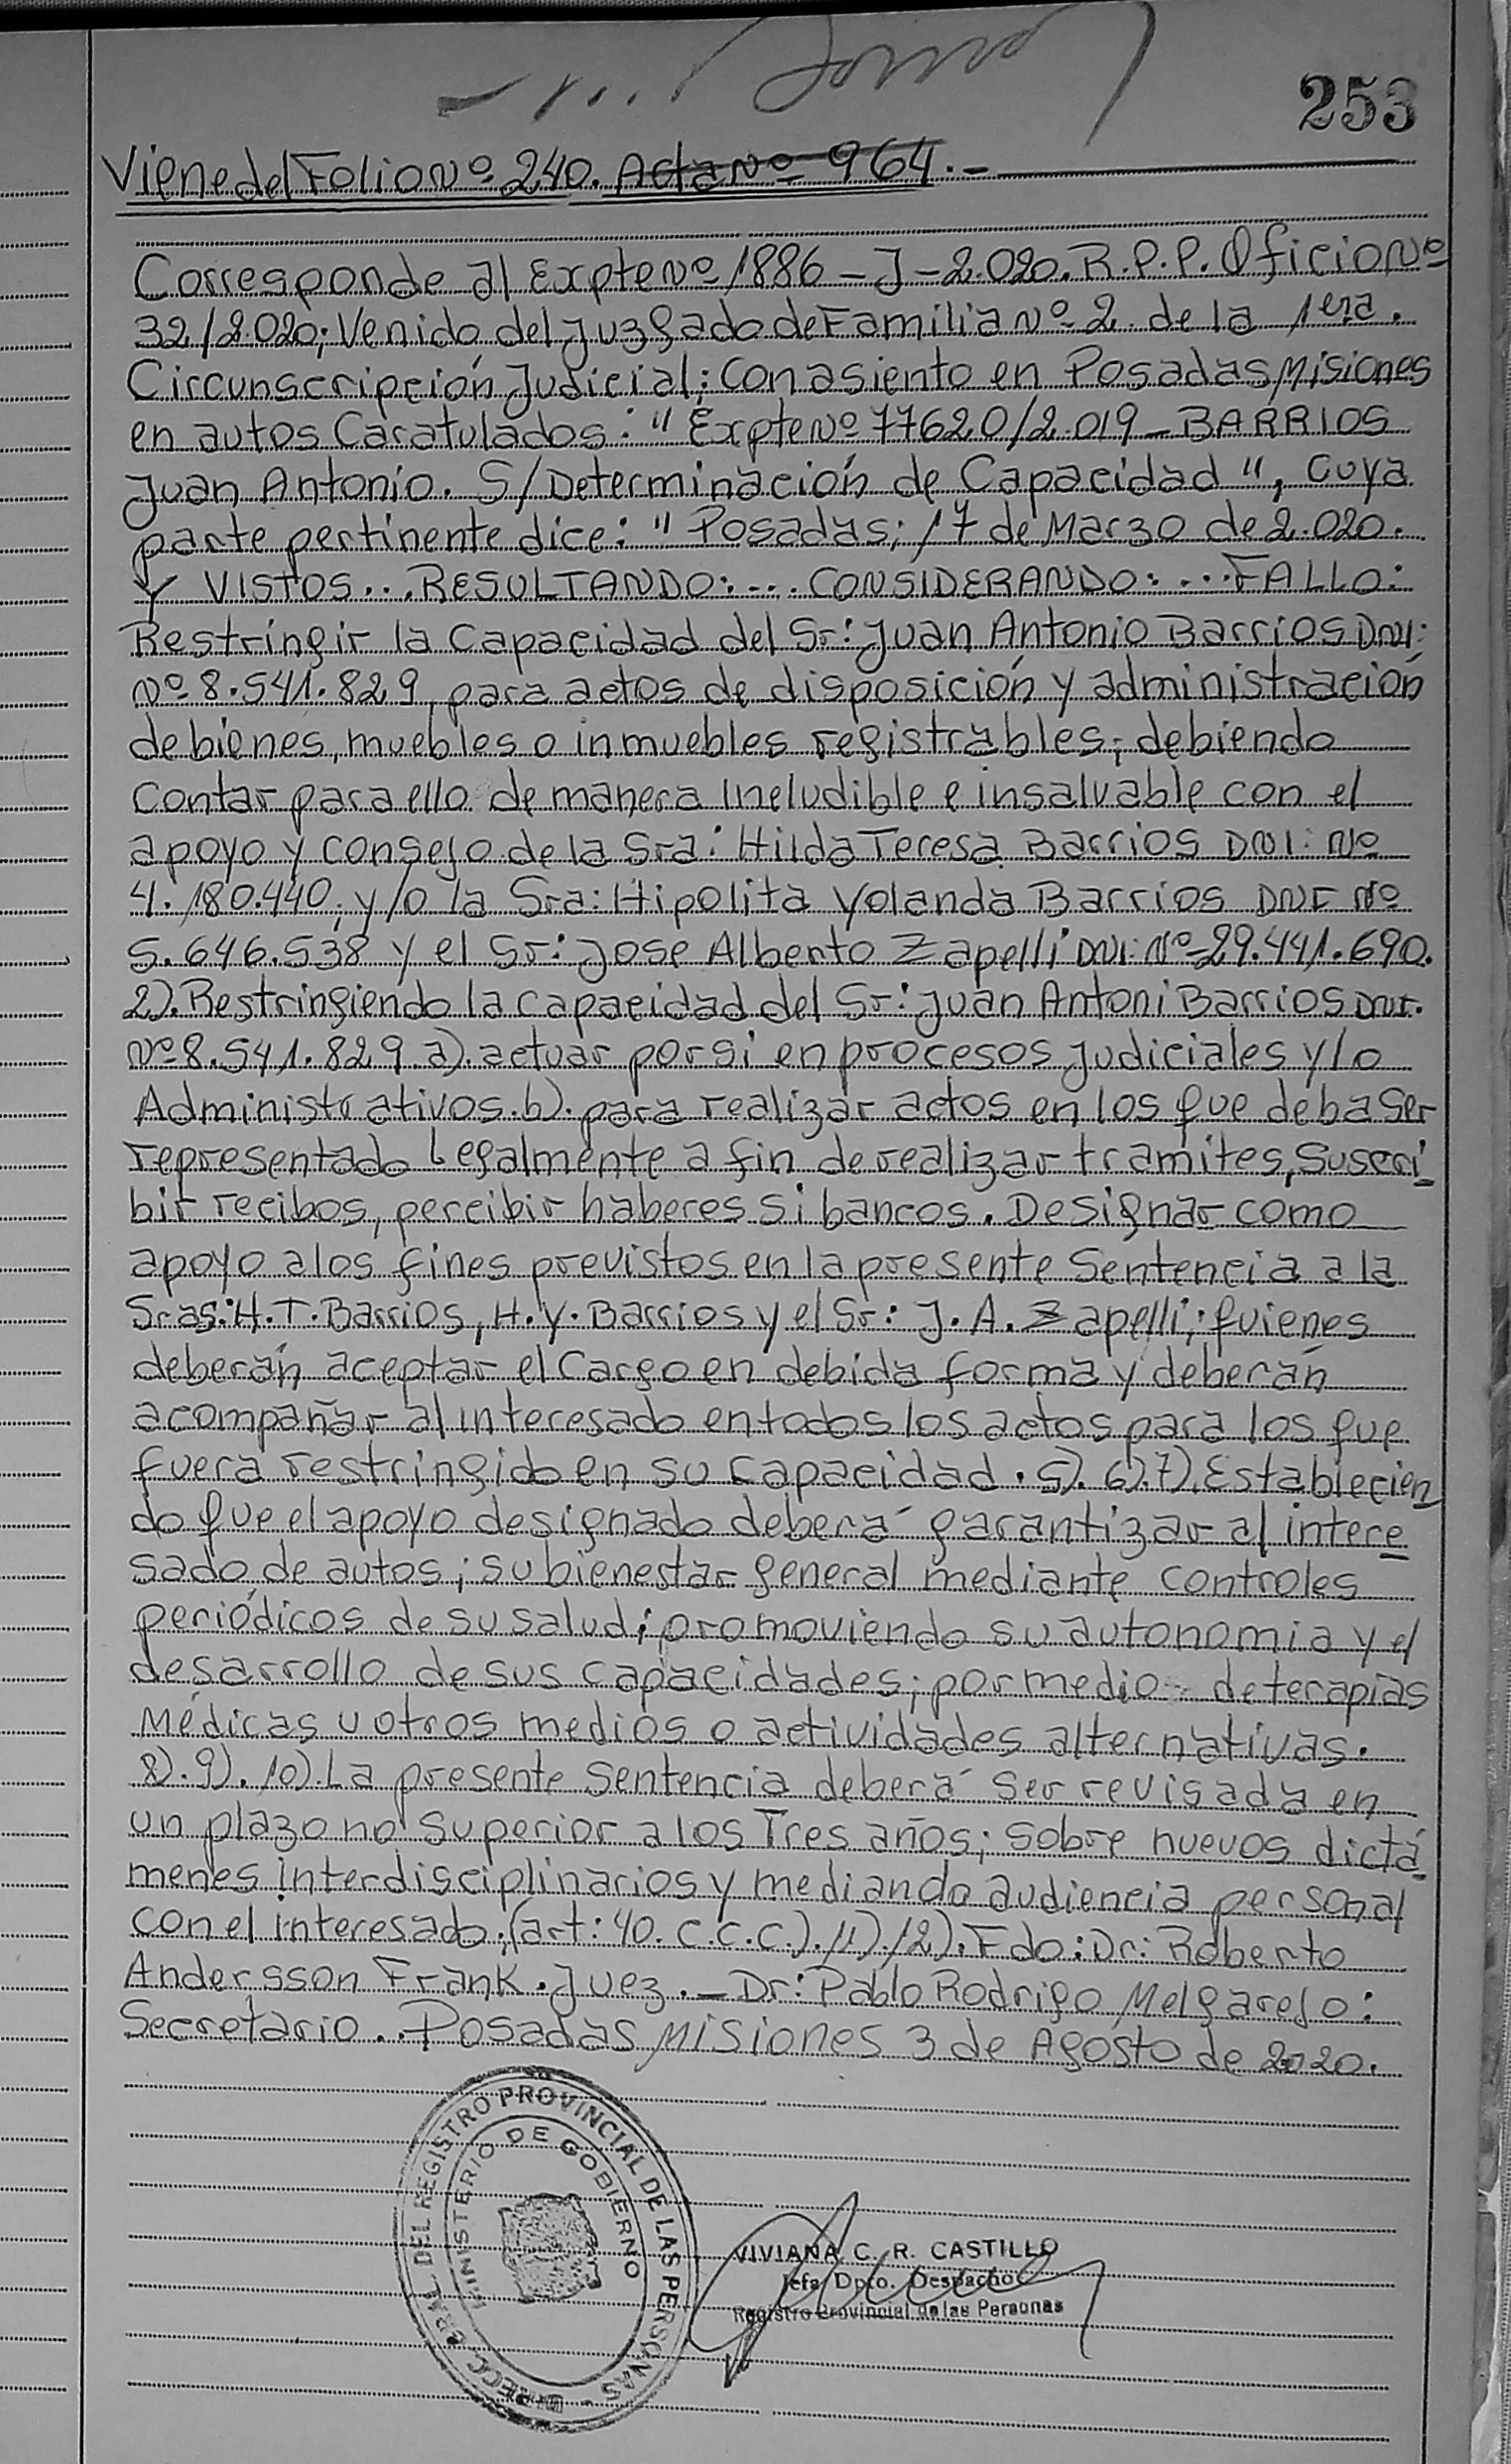 253
Viene del Folio Nº 240. Acta Nº 964.-
Corresponde al Expte Nº 1886-J-2.020. R.P.P. Oficio Nº
32/2.020; Venido del Juzgado de Familia Nº 2 de la 1era.
Circunscripción Judicial; con asiento en Posadas Misiones
en autos Caratulados: "Expte Nº 77620/2.019-BARRIOS
Juan Antonio. S/Determinación de Capacidad", Cuya
parte pertinente dice: "Posadas; 17 de Marzo de 2.020.
Y VISTOS...RESULTANDO:...CONSIDERANDO:...FALLO:
Restringir la Capacidad del Sr: Juan Antonio Barrios DNI:
Nº 8.541.829, para actos de disposición y administración
de bienes, muebles o inmuebles registrables; debiendo
Contar para ello de manera ineludible e insalvable con el
apoyo y consejo de la Sra: Hilda Teresa Barrios DNI: Nº
4.180.440; y/o la Sra: Hipolita Yolanda Barrios DNI Nº
5.646.538 y el Sr: Jose Alberto Zapelli DNI: Nº 29.441.690.
2). Restringiendo la capacidad del Sr: Juan Antoni Barrios DNI.
Nº 8.541.829 a). actuar por si en procesos judiciales y/o
Administrativos. b). para realizar actos en los que deba ser
representado Legalmente a fin de realizar tramites, suscri
bir recibos, percibir haberes si bancos. Designar como
apoyo a los fines previstos en la presente Sentencia a la
Sras: H. T. Barrios, H. Y. Barrios y el Sr: J. A. Zapelli; quienes
deberán aceptar el Cargo en debida forma y deberán
acompañar al interesado en todos los actos para los que
fuera restringido en su capacidad. 5). 6). 7). Establecien
do que el apoyo designado deberá garantizar al intere
sado de autos; su bienestar general mediante controles
periódicos de su salud; promoviendo su autonomia y el
desarrollo de sus capacidades; por medio de terapias
Médicas u otros medios o actividades alternativas.
8). 9). 10). La presente Sentencia deberá ser revisada en
un plazo no superior a los Tres años; sobre nuevos dictá
menes interdisciplinarios y mediando audiencia personal
con el interesado; (art: 40. C.C.C.). 11). 12). Fdo: Dr: Roberto
Andersson Frank. Juez.- Dr: Pablo Rodrigo Melgarejo:
Secretario.. Posadas Misiones 3 de Agosto de 2020.
DIRECC. GRAL. DEL REGISTRO PROVINCIAL DE LAS PERSONAS
MINISTERIO DE GOBIERNO
VIVIANA C. R. CASTILLO
Jefa Dpto. Despacho
Registro Provincial de las Personas